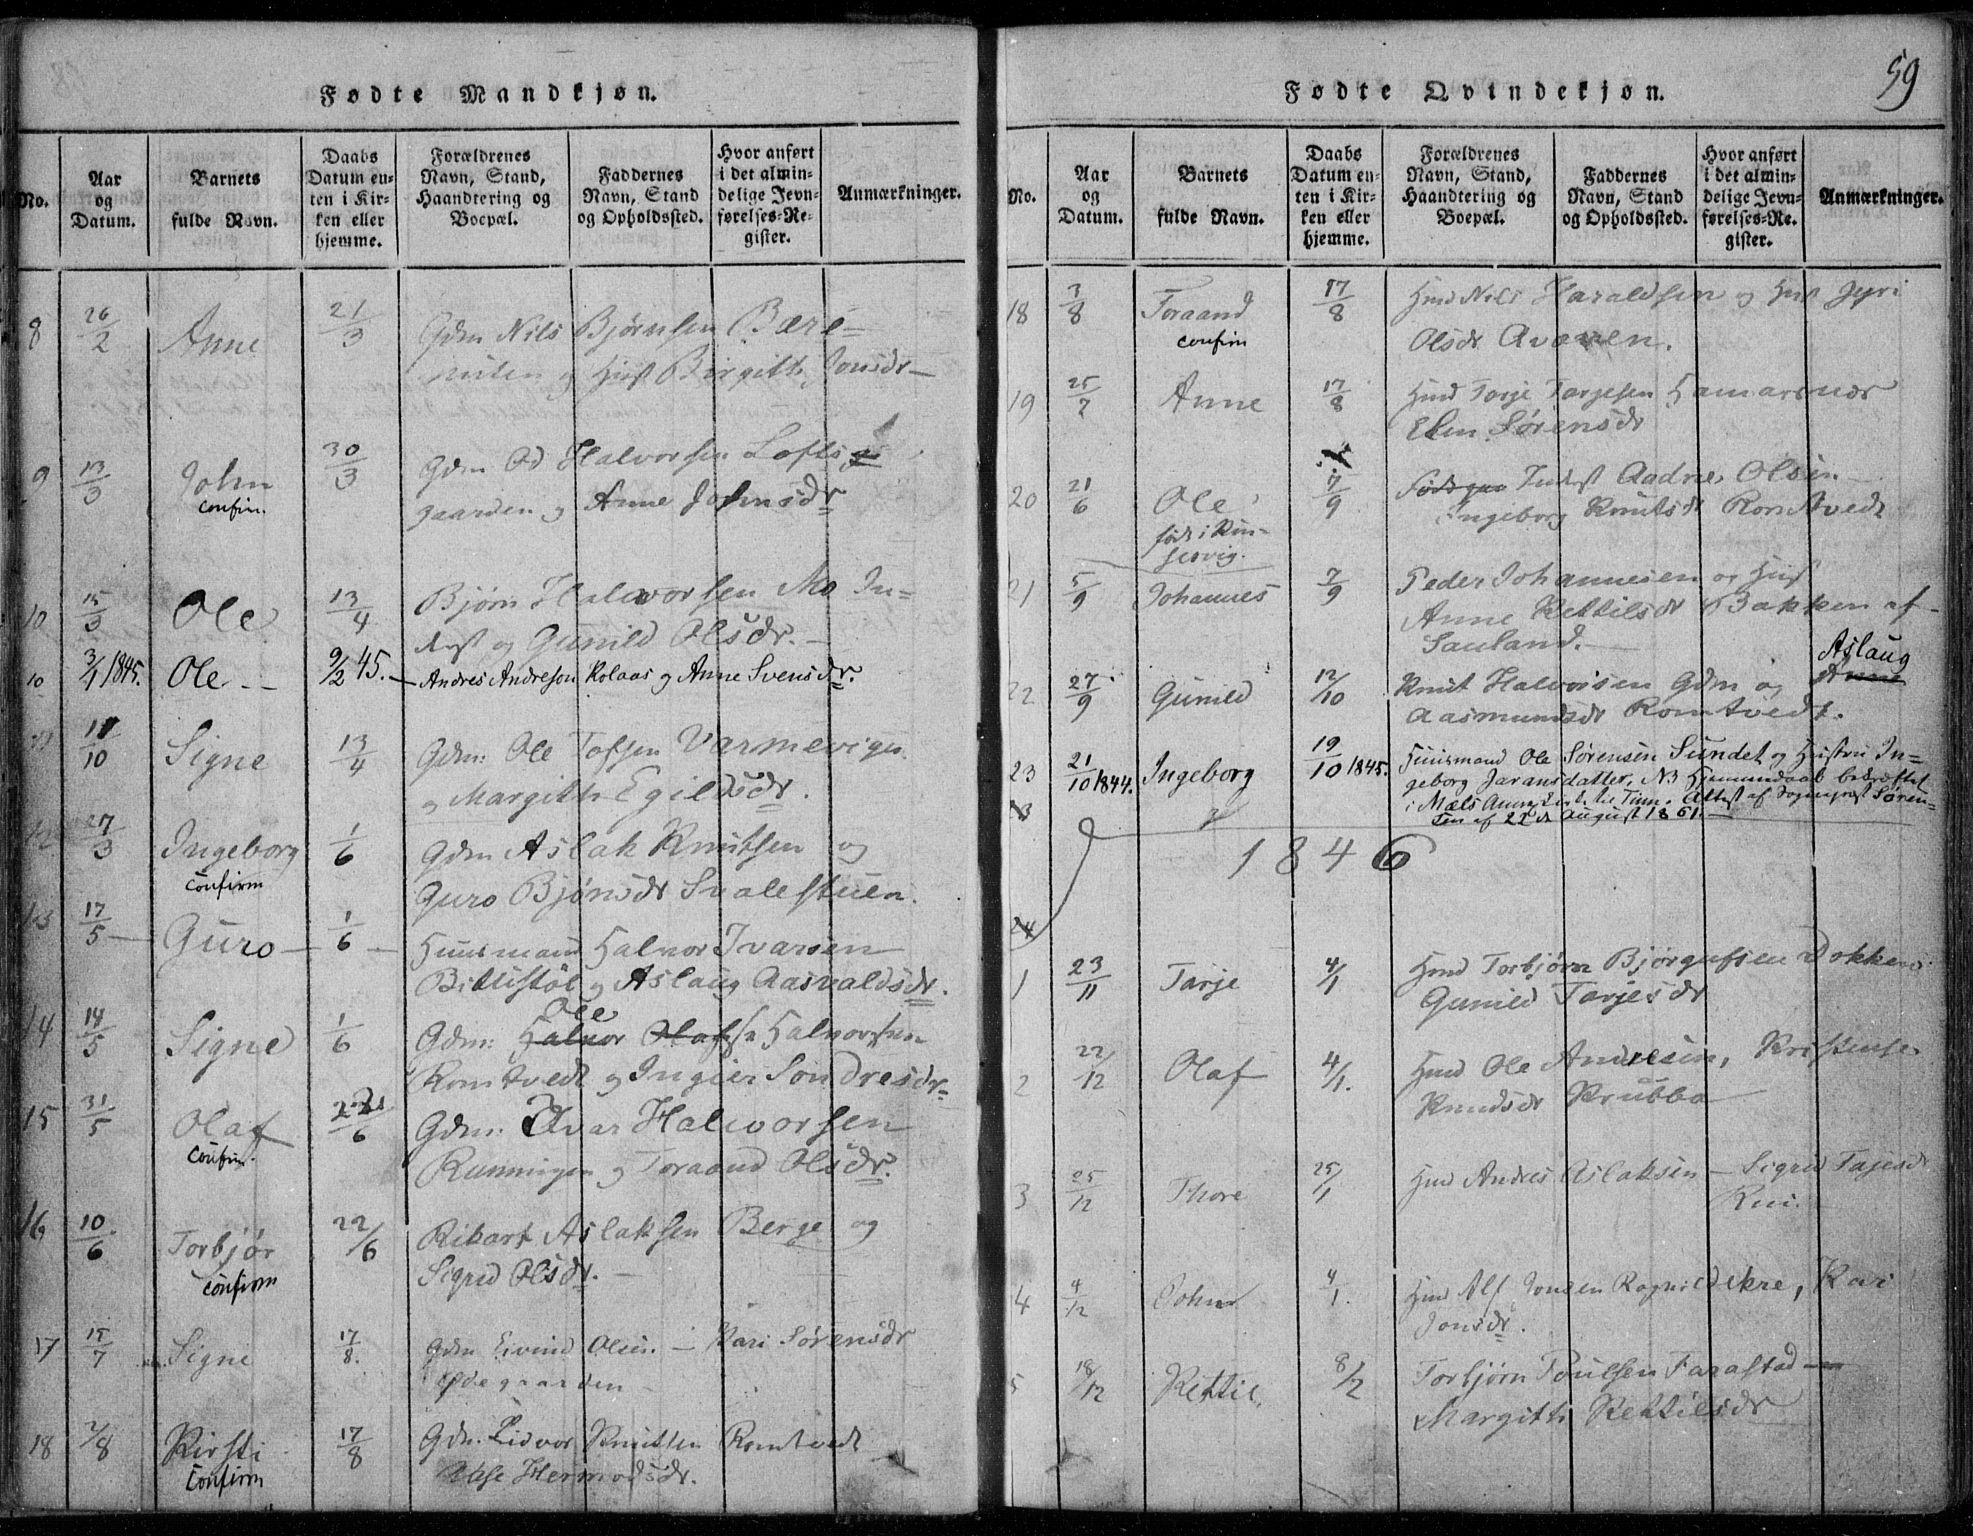 Fødte Mandkjøn.
No.
Aar
og
Datum.
Barnets
fulde Navn.
Daabs
Datum en-
ten i Kir-
ken eller
hjemme.
Forældrenes
Navn, Stand,
Haandtering og
Boepæl.
Faddernes
Navn, Stand
og Opholdssted.
Hvor anført
i det almin-
delige Jevn-
førelses-Re-
gister.
Anmærkninger.
8 26/2 Anne 21/3 Gdm Nils Bjørnsen Bære-
og Hust Birgitth Jonsdr
9 13/3 John 30/3 Gdm Od Halvorsen Lofts
Confirm. gaarden og Anne Johnsdr
10 15/3 Ole 13/4 Bjørn Halvorsen Mo In-
derst og Gunild Olsdr.
10 3/1 1845. Ole 9/2 45. Andres Andreson Kolaas og Anne Svensdr.
11/10 Signe 13/4 Gdm: Ole Tofsen
og Margith Egilsdr.
12 27/3 Ingeborg 1/6 Gdm Aslak Knutsen og
Confirm Guro Bjønsdr Svalestuen.
13 17/5 Guro 1/6 Huusmand Halvor Ivarsen
Bittistøl og Aslaug Aasvaldsdr.
Ole
14 14/5 Signe 1/6 Gdm: Halvor Olafsn Halvorsen
Romtvedt og Ingier Søndresdr
15 31/5 Olaf 22/6 Gdm: Ivar Halvorsen
Confirm. Runningen og Toraand Olsdr.
16 10/6 Torbjør 22/6 Rikart Aslaksen Berge og
Confirm Sigrid Olsdr.
17 15/7 Signe 17/8. Gdm Eivind Olsen. - Kari Sørensdr
Ødegaarden
18 2/8 Kirsti 17/8 Gdm. Eidvor Knutsen Romtvedt
Confirm Aase Hermodsdr.
59
Fødte Qvindekjøn.
No.
Aar
og
Datum.
Barnets
fulde Navn.
Daabs
Datum en-
ten i Kir-
ken eller
hjemme.
Forældrenes
Navn, Stand,
Haandtering og
Boepæl.
Faddernes
Navn, Stand
og Opholdssted.
Hvor anført
i det almin-
delige Jevn-
førelses-Re-
gister.
Anmærkninger.
18 3/8 Toraand 17/8 Hmd Nils Haraldsen og Hust Jyri
Confirm Olsdr
19 25/7 Anne 17/8 Hmd Torje Torjesen Hamarsnæs
Elen Sørensdr
20 21/6 Ole 7/9 Inderst Aadne Olsen
født i Ingeborg Knutsdr Romtvedt
21 5/9 Johannes 7/9 Peder Johannesen og Hust
Anne Kettilsdr Bakken af
Sauland.
Aslaug
22 27/9 Gunild 12/10 Knut Halvorsen Gdm og Anne
Aasmundsdr Romtvedt.
23 21/10 1844. Ingeborg 19/10 1845. Huusmand Ole Sørensen Sundet og Hustru In-
geborg Jaransdatter. NB Hjemmedaab bekræftet
i Mæls Annexkirke til Tinn. Attest af Sognepræst Søren-
sen af 22de August 1861.
1846
24
1 23/11 Tarje 4/1 Hmd Torbjørn Bjørgufsen Dokken
Gunild Tarjesdr
2 22/12 Olaf 4/1. Hmd Ole Andresen, Kristense
Knudsdr Krubba
3 25/12 Thore 25/1 Hmd Andres Aslaksen - Sigrid Tajesdr
Rui.
4 4/12 John 4/1. Hmd Alf Jonsen Ragnildekre, Kari
Jonsdr.
5 18/12 Kettil 8/2 Torbjørn Poulsen Farastad
Margith Kettilsdr